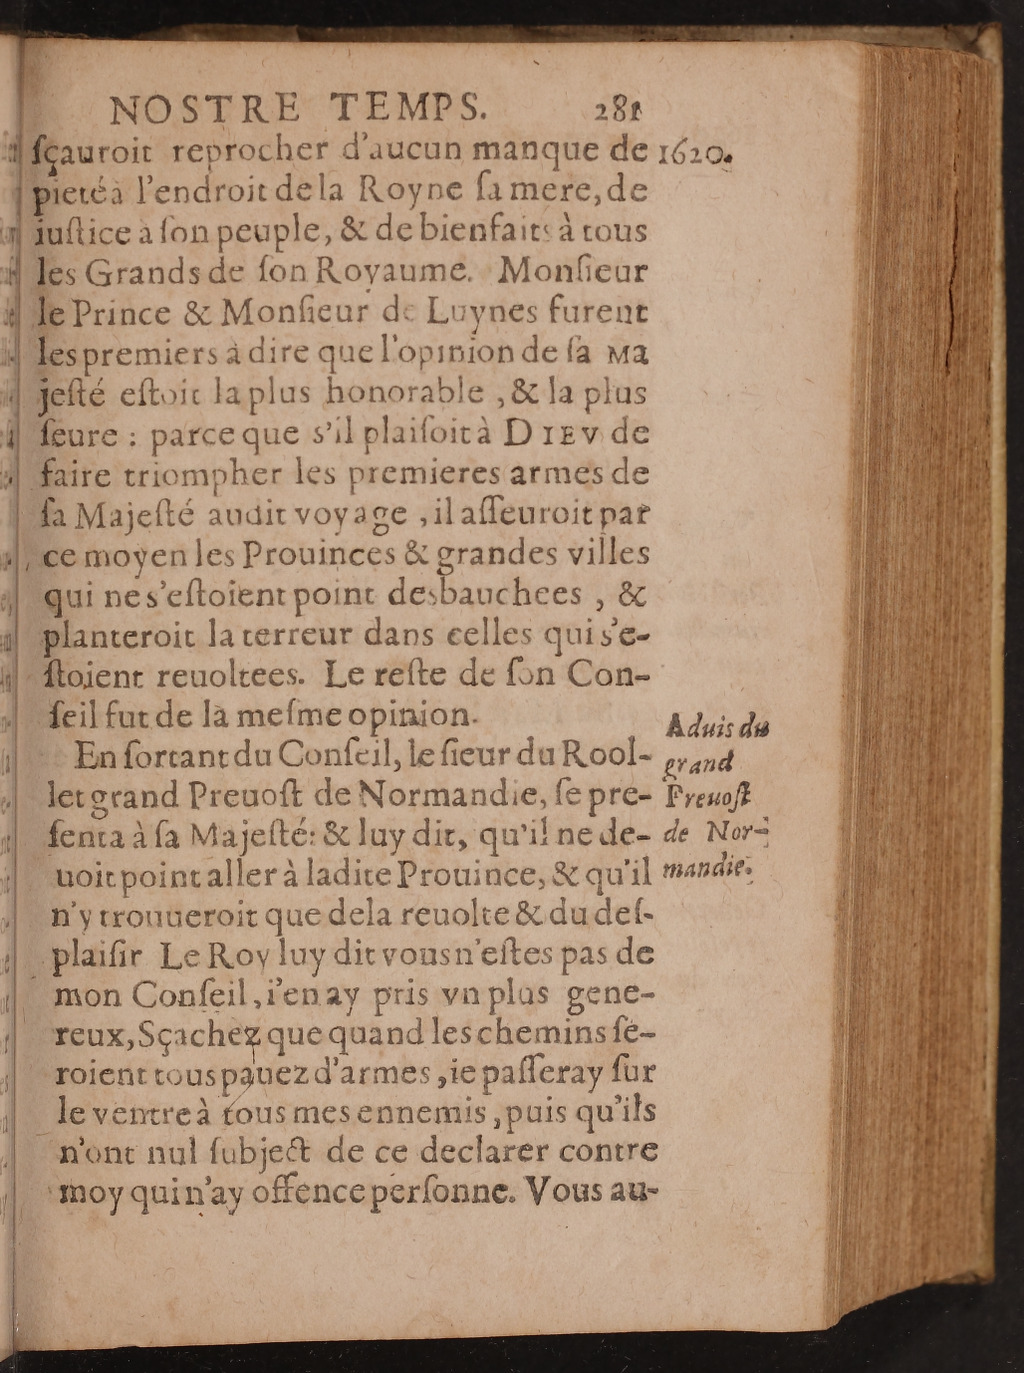 NOSTRE TEMPS. 281
ſçauroit reprocher d'aucun manque de 1620.
pieté à l'endroit de la Royne ſa mere, de
iuſtice à ſon peuple, & de bienfaits à tous
les Grands de ſon Royaume. Monſieur
le Prince & Monſieur de Luynes furent
les premiers à dire que l'opinion de ſa Ma
jeſté eſtoit la plus honorable , & la plus
ſeure : parce que s'il plaiſoit à DIEV de
faire triompher les premieres armes de
ſa Majeſté audit voyage , il aſſeuroit par
ce moyen les Prouinces & grandes villes
qui ne s'eſtoient point desbauchees , &
planteroit la terreur dans celles qui s'e-
ſtoient reuoltees. Le reſte de ſon Con-
ſeil fut de la meſme opinion.
En ſortant du Conſeil, le ſieur du Rool-
let grand Preuoſt de Normandie, ſe pre-
ſenta à ſa Majeſté: & luy dit, qu'il ne de-
uoit point aller à ladite Prouince, & qu'il
n'y trouueroit que de la reuolte & du deſ-
plaiſir Le Roy luy dit vous n'eſtes pas de
mon Conſeil, i'en ay pris vn plus gene-
reux, Sçachez que quand les chemins ſe-
roient tous pauez d'armes , ie paſſeray ſur
le ventre à tous mes ennemis , puis qu'ils
n'ont nul ſubject de ce declarer contre
moy qui n'ay offence perſonne. Vous au-
Aduis du
grand
Preuoſt
de Nor-
mandie.